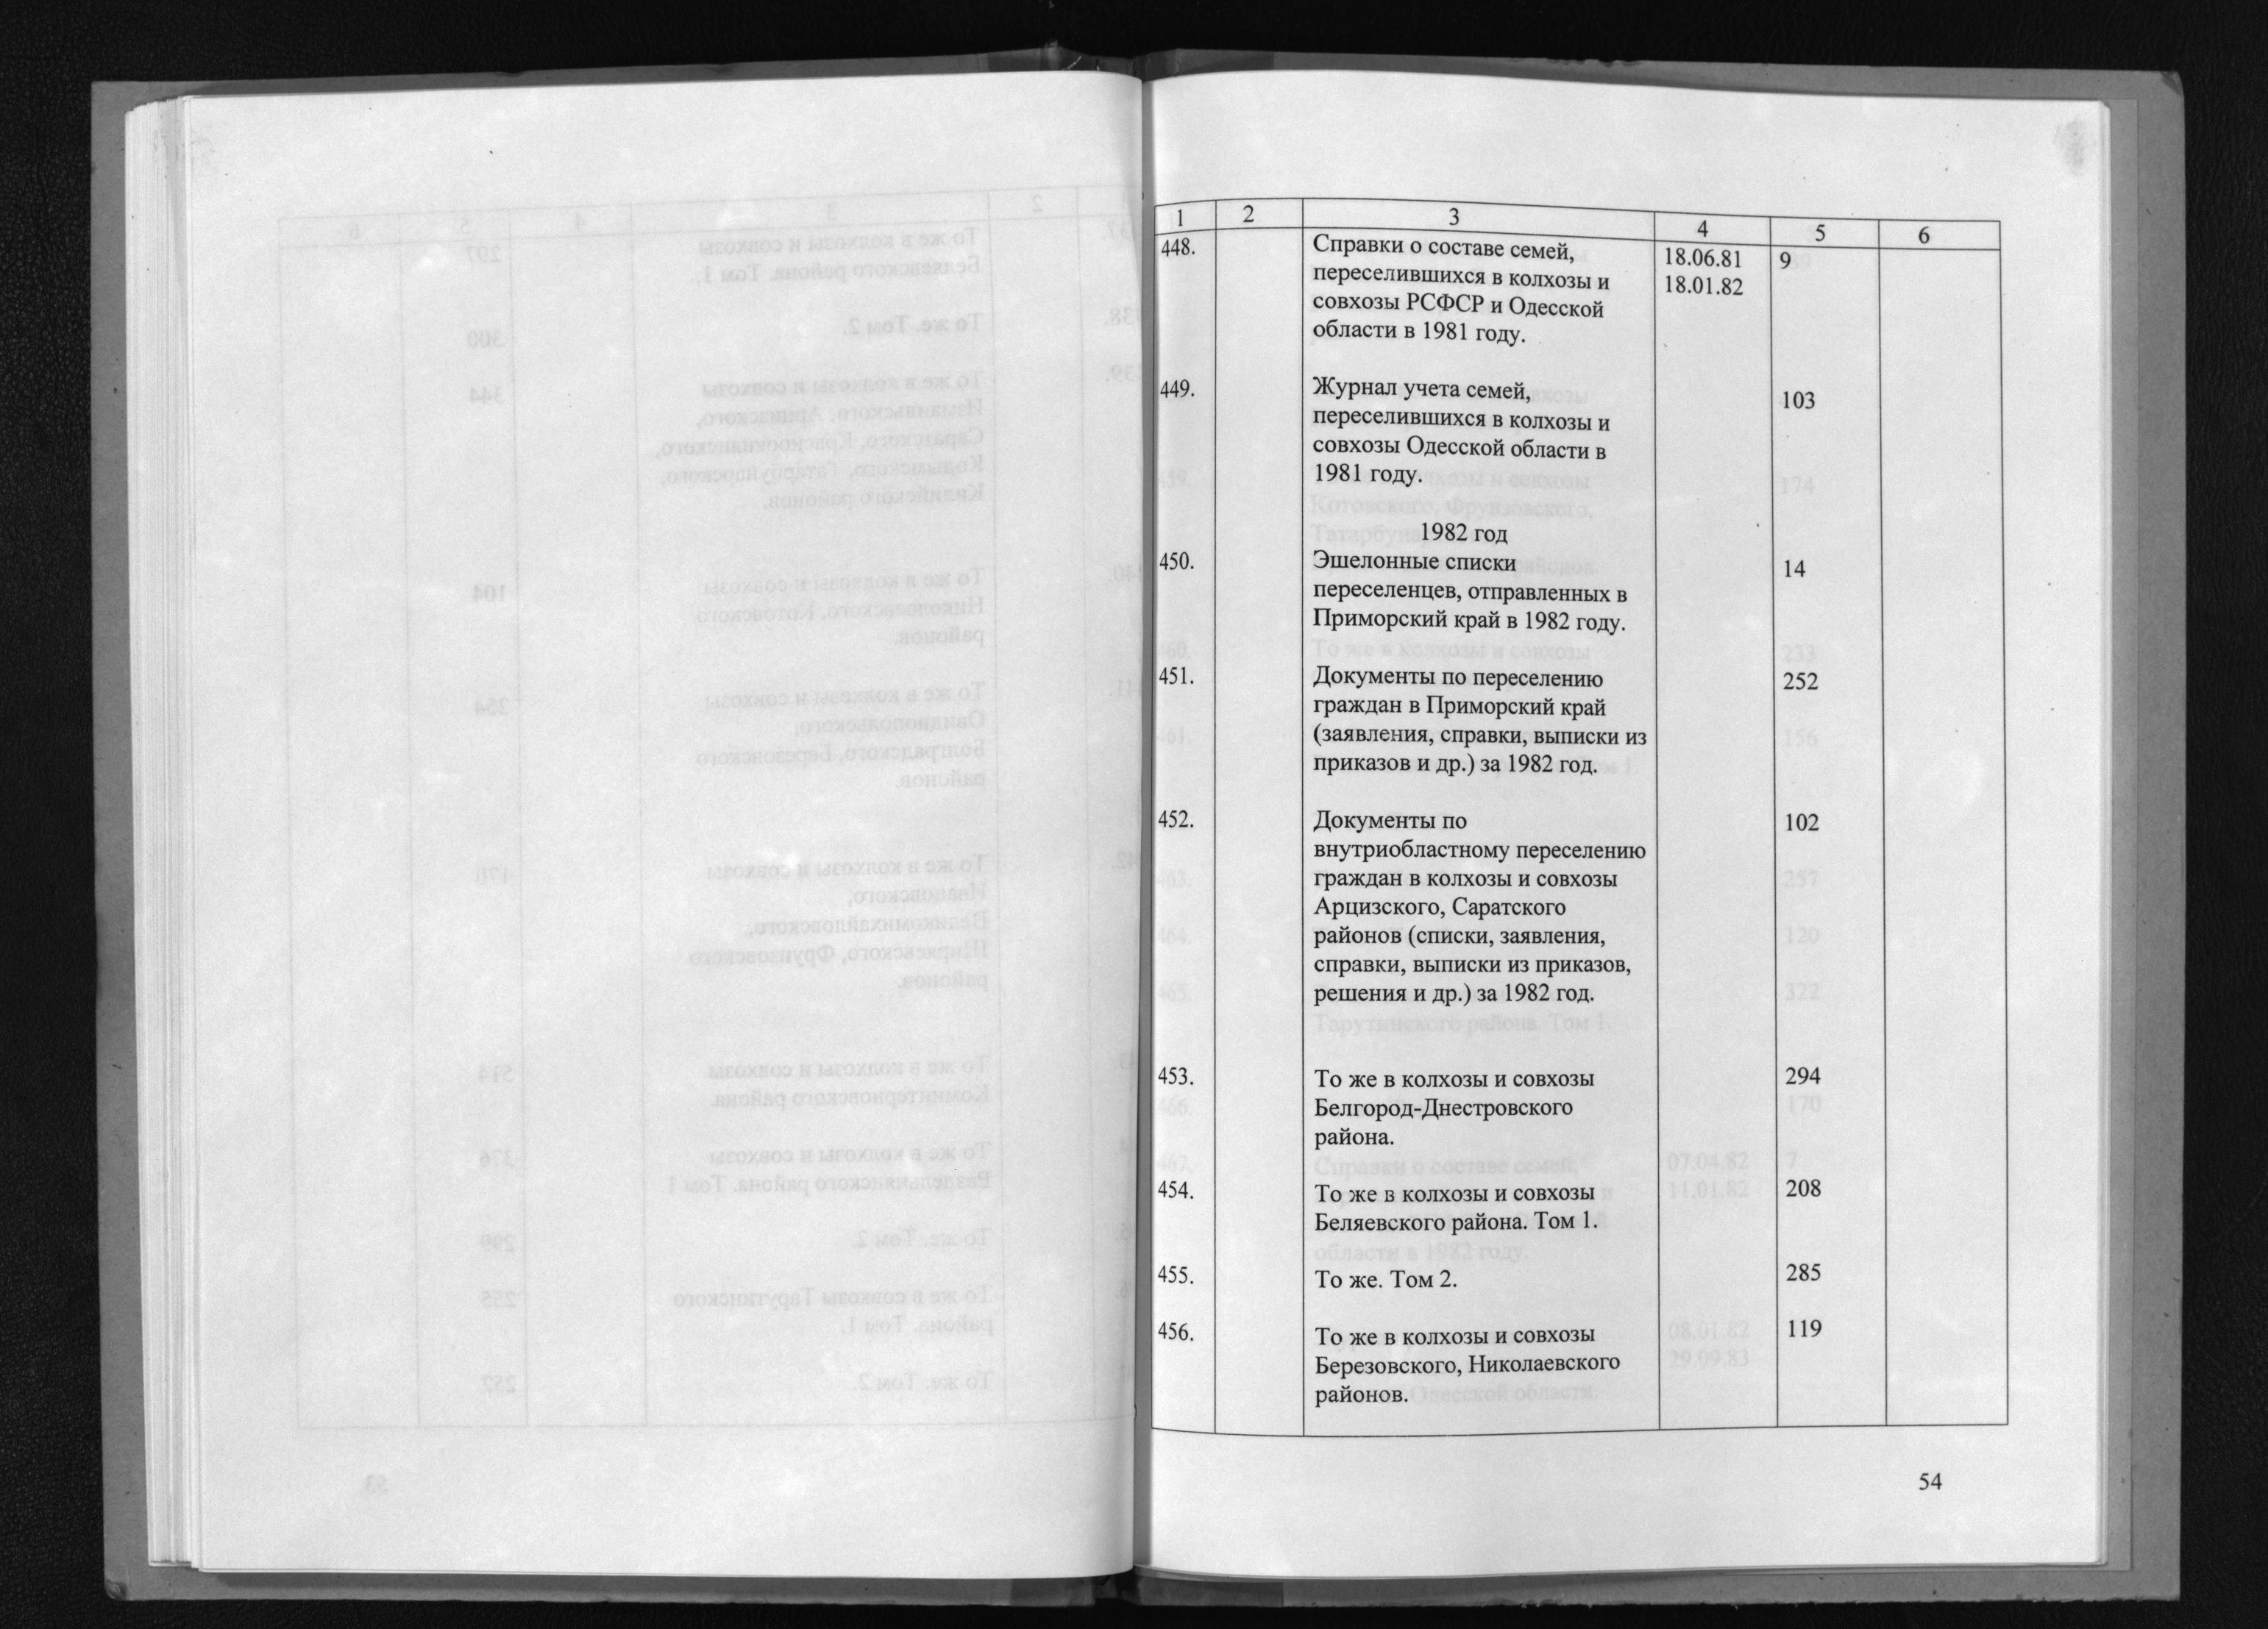 1 2 3 4 5 6
448. Справки о составе семей, 18.06.81 9
переселившихся в колхозы и 18.01.82
совхозы РСФСР и Одесской
области в 1981 году.
449. Журнал учета семей, 103
переселившихся в колхозы и
совхозы Одесской области в
1981 году.
1982 год
450. Эшелонные списки 14
переселенцев, отправленных в
Приморский край в 1982 году.
451. Документы по переселению 252
граждан в Приморский край
(заявления, справки, выписки из
приказов и др.) за 1982 год.
452. Документы по 102
внутриобластному переселению
граждан в колхозы и совхозы
Арцизского, Саратского
районов (списки, заявления,
справки, выписки из приказов,
решения и др.) за 1982 год.
453. То же в колхозы и совхозы 294
Белгород-Днестровского
района.
454. То же в колхозы и совхозы 208
Беляевского района. Том 1.
455. То же. Том 2. 285
456. То же в колхозы и совхозы 119
Березовского, Николаевского
районов.
54